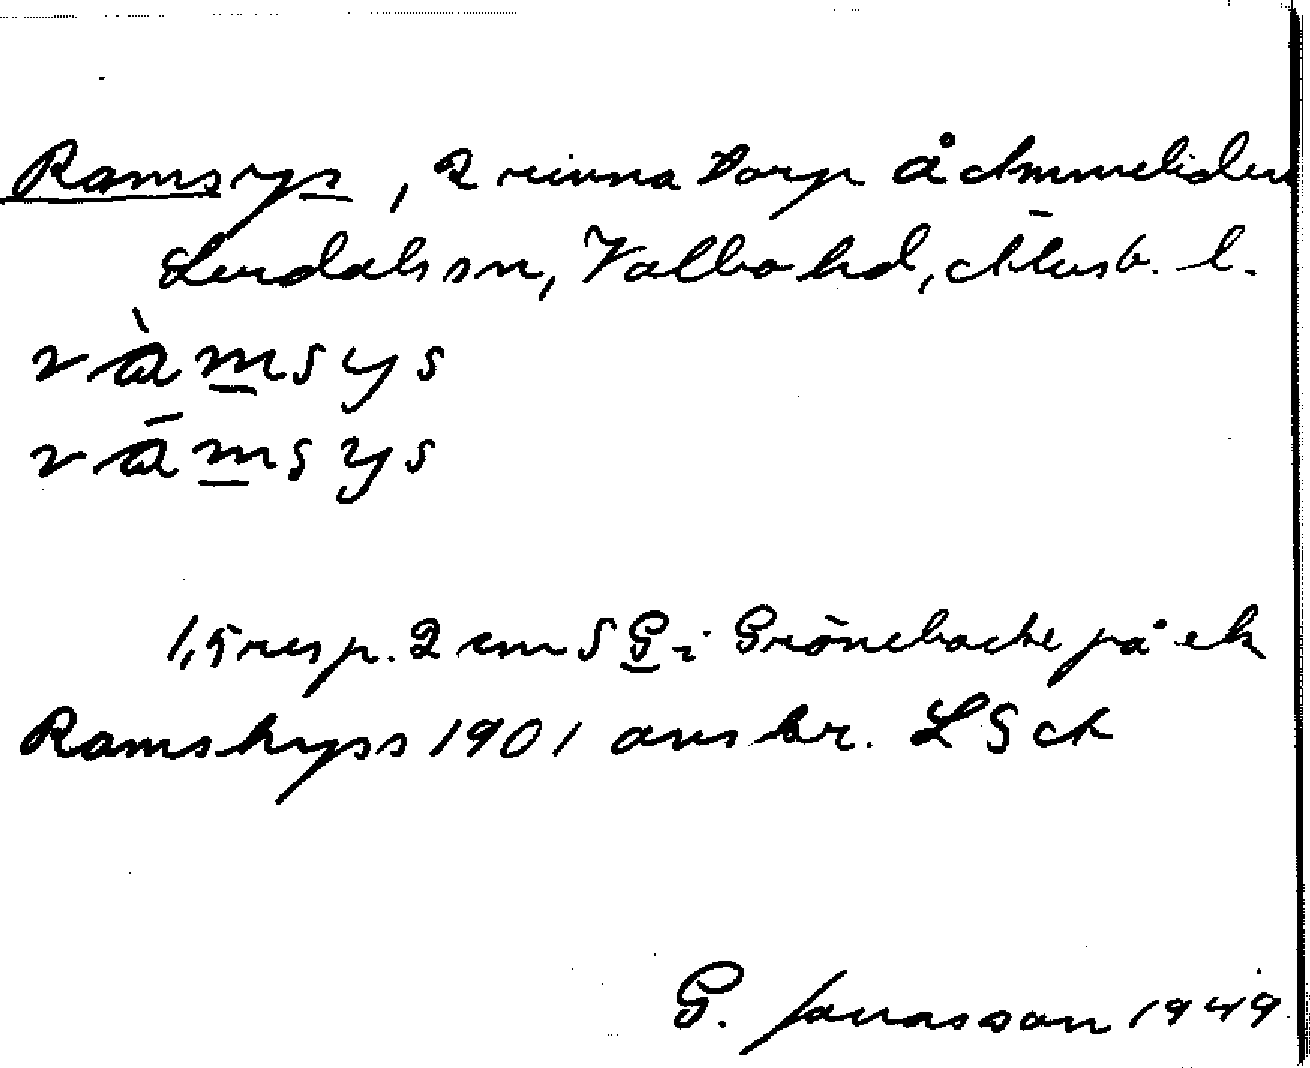 Ramsrys, 2 rivna torp å Ammeliden
Lerdals sn, Valbo hd, Älvsb. l.
ràmsys
rāmsys
1,5 resp. 2 cm S G i Grönebacke på ek
Ramskryss 1901 avs br. LSch
G. Jonasson 1949